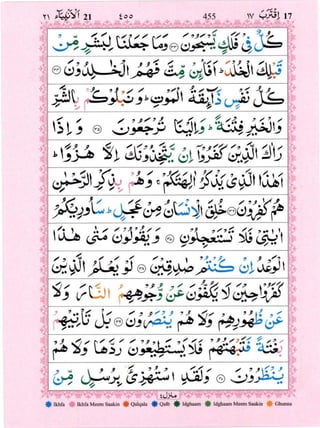 ٢١ اَلْاَنْبِيَآء 21 ٤٥٥ 455 ١٧ اِقْتَرَبَ 17
كُلٌّ فِیْ فَلَكٍ یَّسْبَحُوْنَ ﴿۳۳﴾ وَمَا جَعَلْنَا لِبَشَرٍ مِّنْ
قَبْلِكَ الْخُلْدَ ؕ اَفَا۠ئِنْ مِّتَّ فَهُمُ الْخٰلِدُوْنَ ﴿۳۴﴾
كُلُّ نَفْسٍ ذَآئِقَةُ الْمَوْتِ ؕ وَنَبْلُوْكُمْ بِالشَّرِّ
وَالْخَیْرِ فِتْنَةً ؕ وَاِلَیْنَا تُرْجَعُوْنَ ﴿۳۵﴾ وَاِذَا
رَاٰكَ الَّذِیْنَ كَفَرُوْۤا اِنْ یَّتَّخِذُوْنَكَ اِلَّا هُزُوًا ؕ
اَهٰذَا الَّذِیْ یَذْكُرُ اٰلِهَتَكُمْ ۚ وَهُمْ بِذِكْرِ الرَّحْمٰنِ
هُمْ كٰفِرُوْنَ ﴿۳۶﴾ خُلِقَ الْاِنْسَانُ مِنْ عَجَلٍ ؕ سَاُورِیْكُمْ
اٰیٰتِیْ فَلَا تَسْتَعْجِلُوْنِ ﴿۳۷﴾ وَیَقُوْلُوْنَ مَتٰی هٰذَا
الْوَعْدُ اِنْ كُنْتُمْ صٰدِقِیْنَ ﴿۳۸﴾ لَوْ یَعْلَمُ الَّذِیْنَ
كَفَرُوْا حِیْنَ لَا یَكُفُّوْنَ عَنْ وُّجُوْهِهِمُ النَّارَ وَلَا
عَنْ ظُهُوْرِهِمْ وَلَا هُمْ یُنْصَرُوْنَ ﴿۳۹﴾ بَلْ تَاْتِیْهِمْ
بَغْتَةً فَتَبْهَتُهُمْ فَلَا یَسْتَطِیْعُوْنَ رَدَّهَا وَلَا هُمْ
یُنْظَرُوْنَ ﴿۴۰﴾ وَلَقَدِ اسْتُهْزِئَ بِرُسُلٍ مِّنْ
منزل ٤
Ikhfa Ikhfa Meem Saakin Qalqala Qalb Idghaam Idghaam Meem Saakin Ghunna